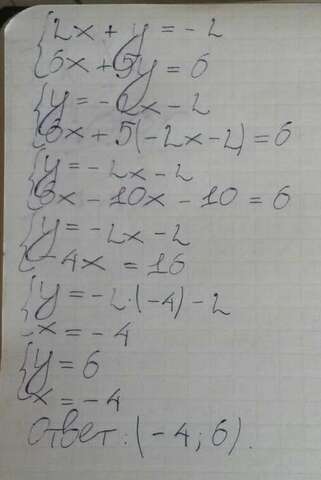 2x + y = -2
6x + 5y = 6
y = -2x - 2
6x + 5(-2x-2) = 6
y = -2x - 2
6x - 10x - 10 = 6
y = -2x - 2
-4x = 16
y = -2·(-4) - 2
x = -4
y = 6
x = -4
Ответ: (-4; 6).